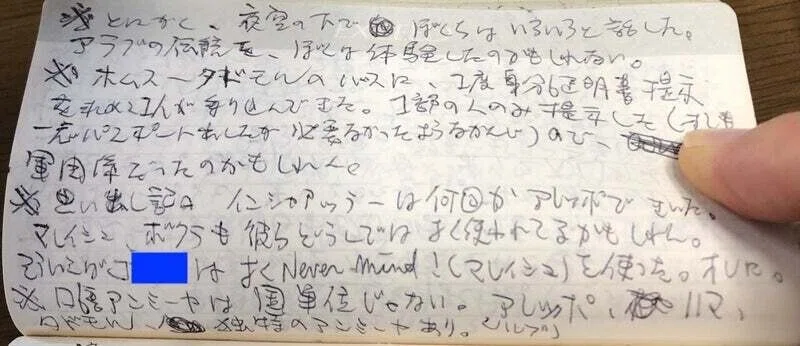 ※とにかく、夜空の下で ぼくらはいろいろと話した。
アラブの伝統を、ぼくは体験したのかもしれない。
※ホムス→タドモルのバスに、1度身分証明書提示
を求め 2人が乗り込んできた。1部の人のみ提示した(オレも
一応パスポート出したが必要なかったようなかんじ)ので、
軍関係だったのかもしれん。
※思い出し記 インシャアッラーは何回かアレッポできいた。
マレイシュ、ボクラも彼らどうしではよく使われてるかもしれん。
はよくNever mind!(マレイシュ)を使った。オレに。
※口語アンミーヤは国単位じゃない。アレッポ、ハマ、
タドモル、独特のアンミーヤあり。